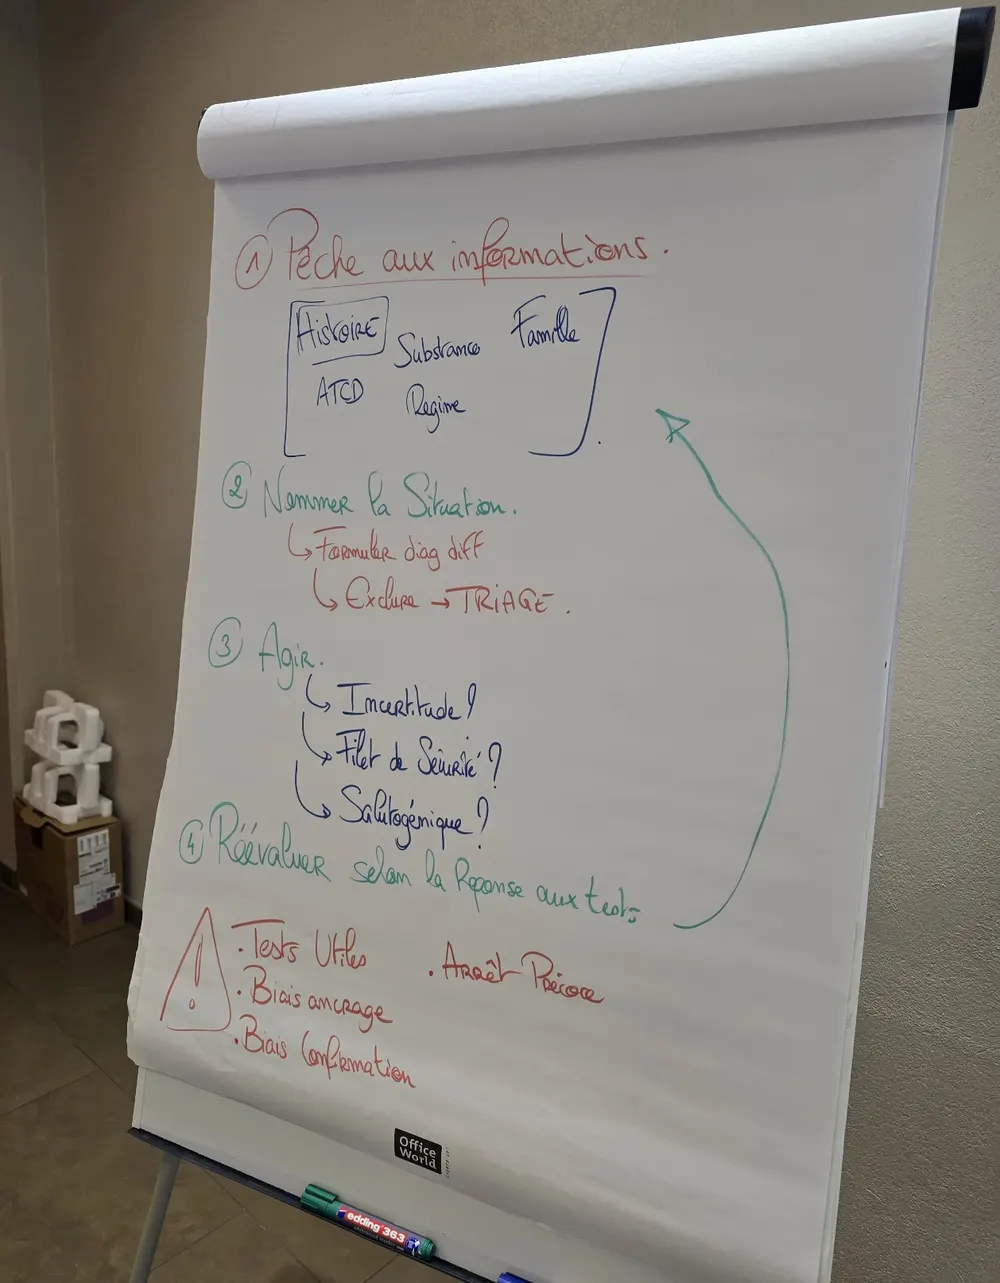 ① Pêche aux informations.
Histoire Substance Famille
ATCD Regime
② Nommer la Situation.
↳ Formuler diag diff
↳ Exclure → TRIAGE.
③ Agir.
↳ Incertitude?
↳ Filet de Sécurité?
↳ Salutogénique?
④ Réévaluer selon la Réponse aux tests
! • Tests Utiles • Arrêt Précoce
• Biais ancrage
• Biais Confirmation
Office
World
edding 363